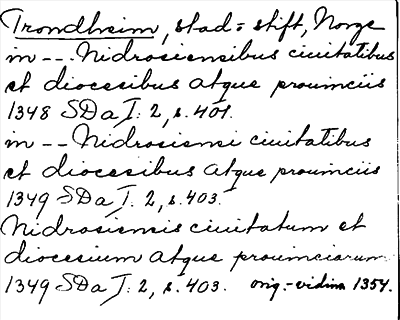 Trondheim, stad = stift, Norge
in --- Nidrosiensibus ciuitatibus
et diocesibus atque prouinciis
1348 SDa I: 2, s. 401.
in -- Nidrosiensi ciuitatibus
et diocesibus atque prouinciis
1349 SDa I: 2, s. 403.
Nidrosiensis ciuitatum et
diocesium atque prouinciarum
1349 SDa I: 2, s. 403. orig.-vidim 1354.